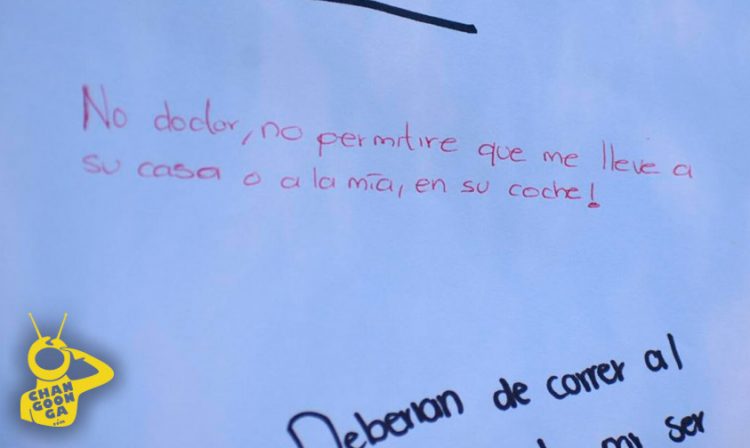 No doctor, no permitire que me lleve a
su casa o a la mía, en su coche!
Deberian de correr al
mi ser
CHAN
GOON
GA
.com